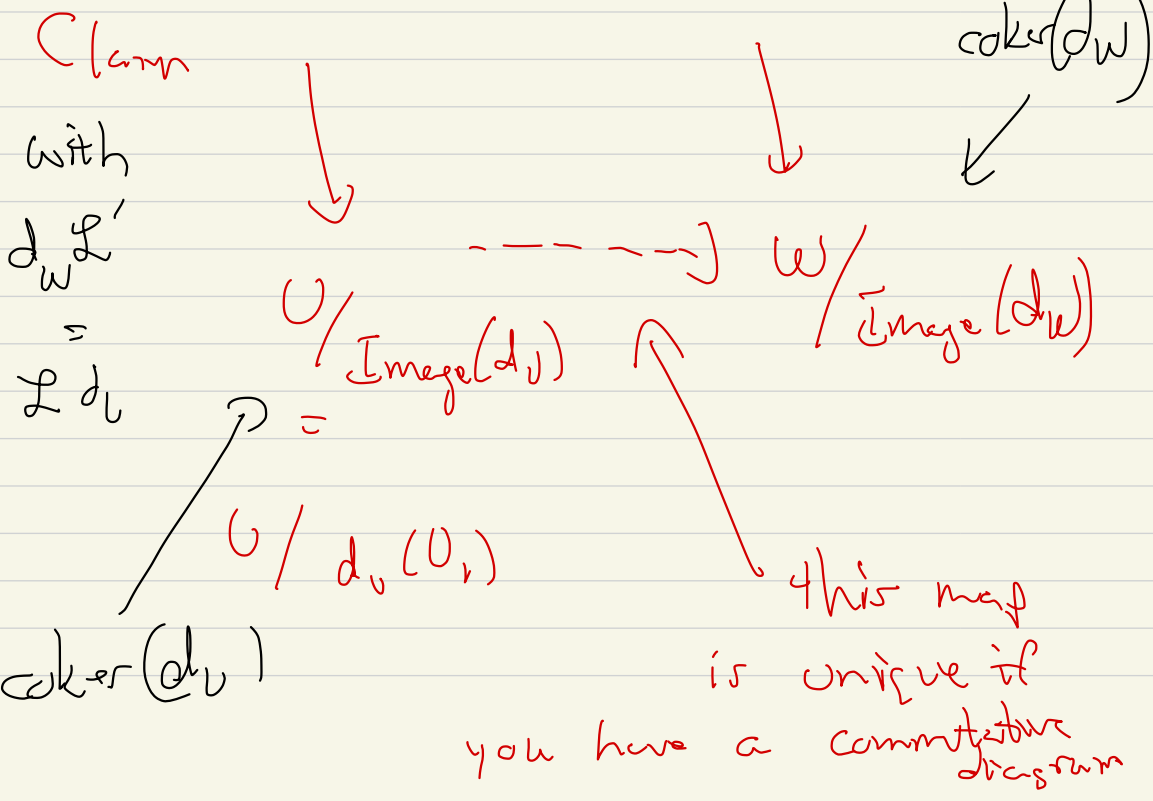 Claim
with
d_W L'
=
L d_U
coker(d_W)
U/Image(d_U)
W/Image(d_W)
=
U/d_U(U_1)
coker(d_U)
this map
is unique if
you have a commutative
diagram